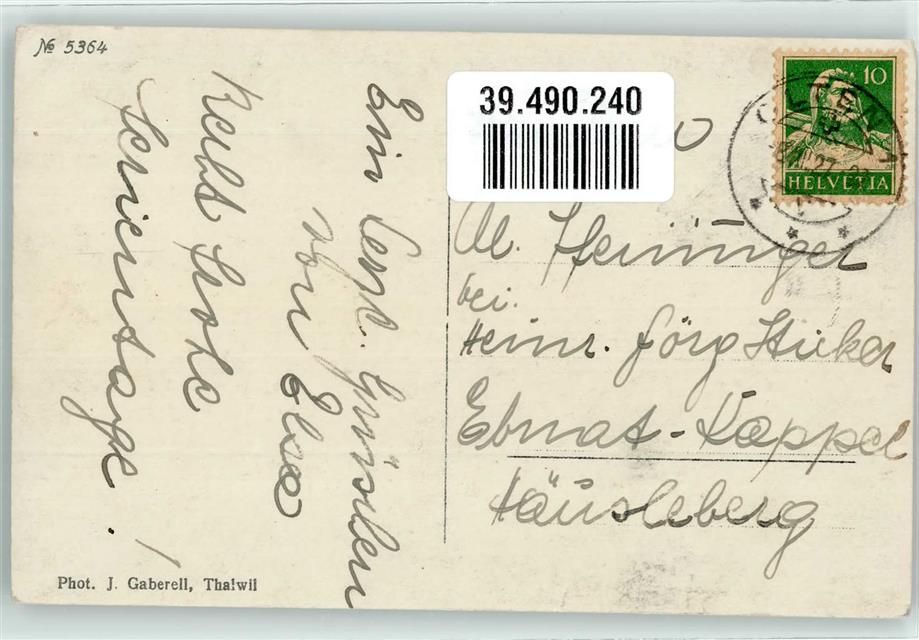 № 5364
39.490.240
10
HELVETIA
Recht frohe
Ferientage!
Ein herzl. Grüsschen
von Elsa
M.
bei.
Heinr. Jörg
Ebnat-Kappel
Häusleberg
Phot. J. Gaberell, Thalwil